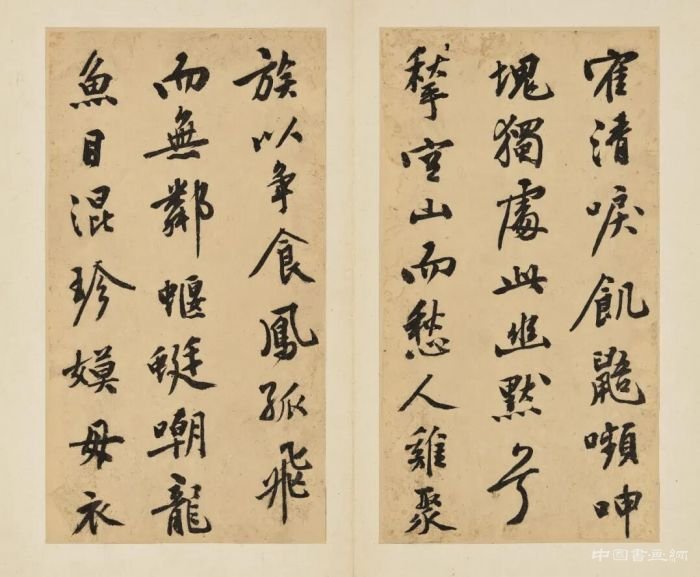 寉清唳飢鼯嚬呻
塊獨處此幽默兮
揫空山而愁人雞聚
族以爭食鳳孤飛
而無鄰蝘蜓嘲龍
魚目混珍嫫母衣
中国書画網